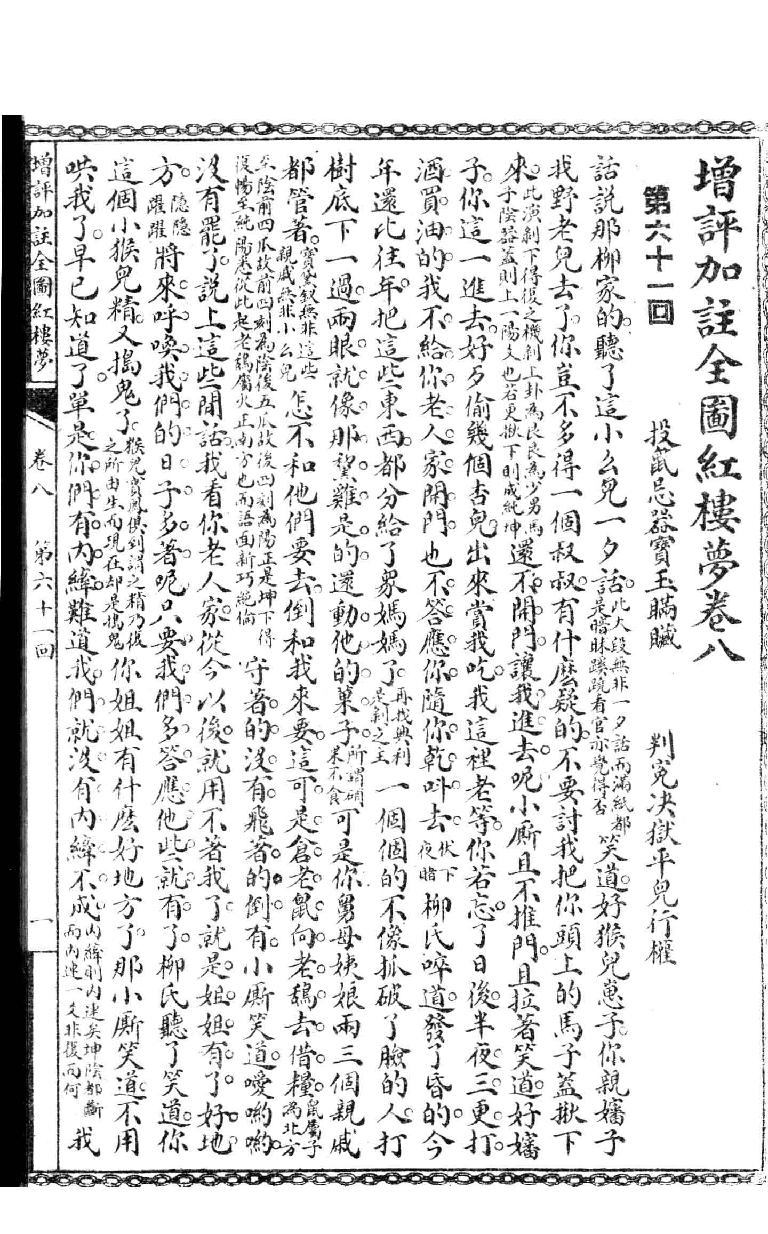 增評加註全圖紅樓夢卷八
第六十一回
投鼠忌器寶玉瞞贓 判冤決獄平兒行權
話說那柳家的聽了這小么兒一夕話此大段無非一夕話而滿紙都是暗昧蹊蹺看官亦覺得否笑道好猴兒崽子你親嬸子
我野老兒去了你豈不多得一個叔叔有什麼疑的不要討我把你頭上的馬子蓋揪下
來此演剝下得復之機剝上卦為艮艮為少男馬子陰器蓋則上一陽爻也若更揪下則成純坤還不開門讓我進去呢小廝且不推門且拉著笑道好嬸
子你這一進去好歹偷幾個杏兒出來賞我吃我這裡老等你若忘了日後半夜三更打
酒買油的我不給你老人家開門也不答應你隨你乾叫去伏下夜賭柳氏啐道發了昏的今
年還比往年把這些東西都分給了眾媽媽了再找興利是剝之主一個個的不像抓破了臉的人打
樹底下一過兩眼就像那黧雞是的還動他的菓子所謂碩果不食可是你舅母姨娘兩三個親戚
都管著寶黛釵無非這些親戚無非小么兒怎不和他們要去倒和我來要這可是倉老鼠向老鴰去借糧鼠屬子為北方
至陰前四爪故前四刻為陰後五爪故後四刻為陽正是坤下得復暢至純陽意從此起老鴰屬火正南方也而語面新巧絕倫守著的沒有飛著的倒有小廝笑道噯喲喲
沒有罷了說上這些閒話我看你老人家從今以後就用不著我了就是姐姐有了好地
方隱隱躍躍將來呼喚我們的日子多著呢只要我們多答應他些就有了柳氏聽了笑道你
這個小猴兒精又搗鬼了猴兒寶鳳俱到謂之精乃後之所由生而現在却是搗鬼你姐姐有什麼好地方了那小廝笑道不用
哄我了早已知道了單是你們有內緯難道我們就沒有內緯不成內緯則內連矣坤陰都斷而內連一爻非復而何我
增評加註全圖紅樓夢 卷八 第六十一回 一